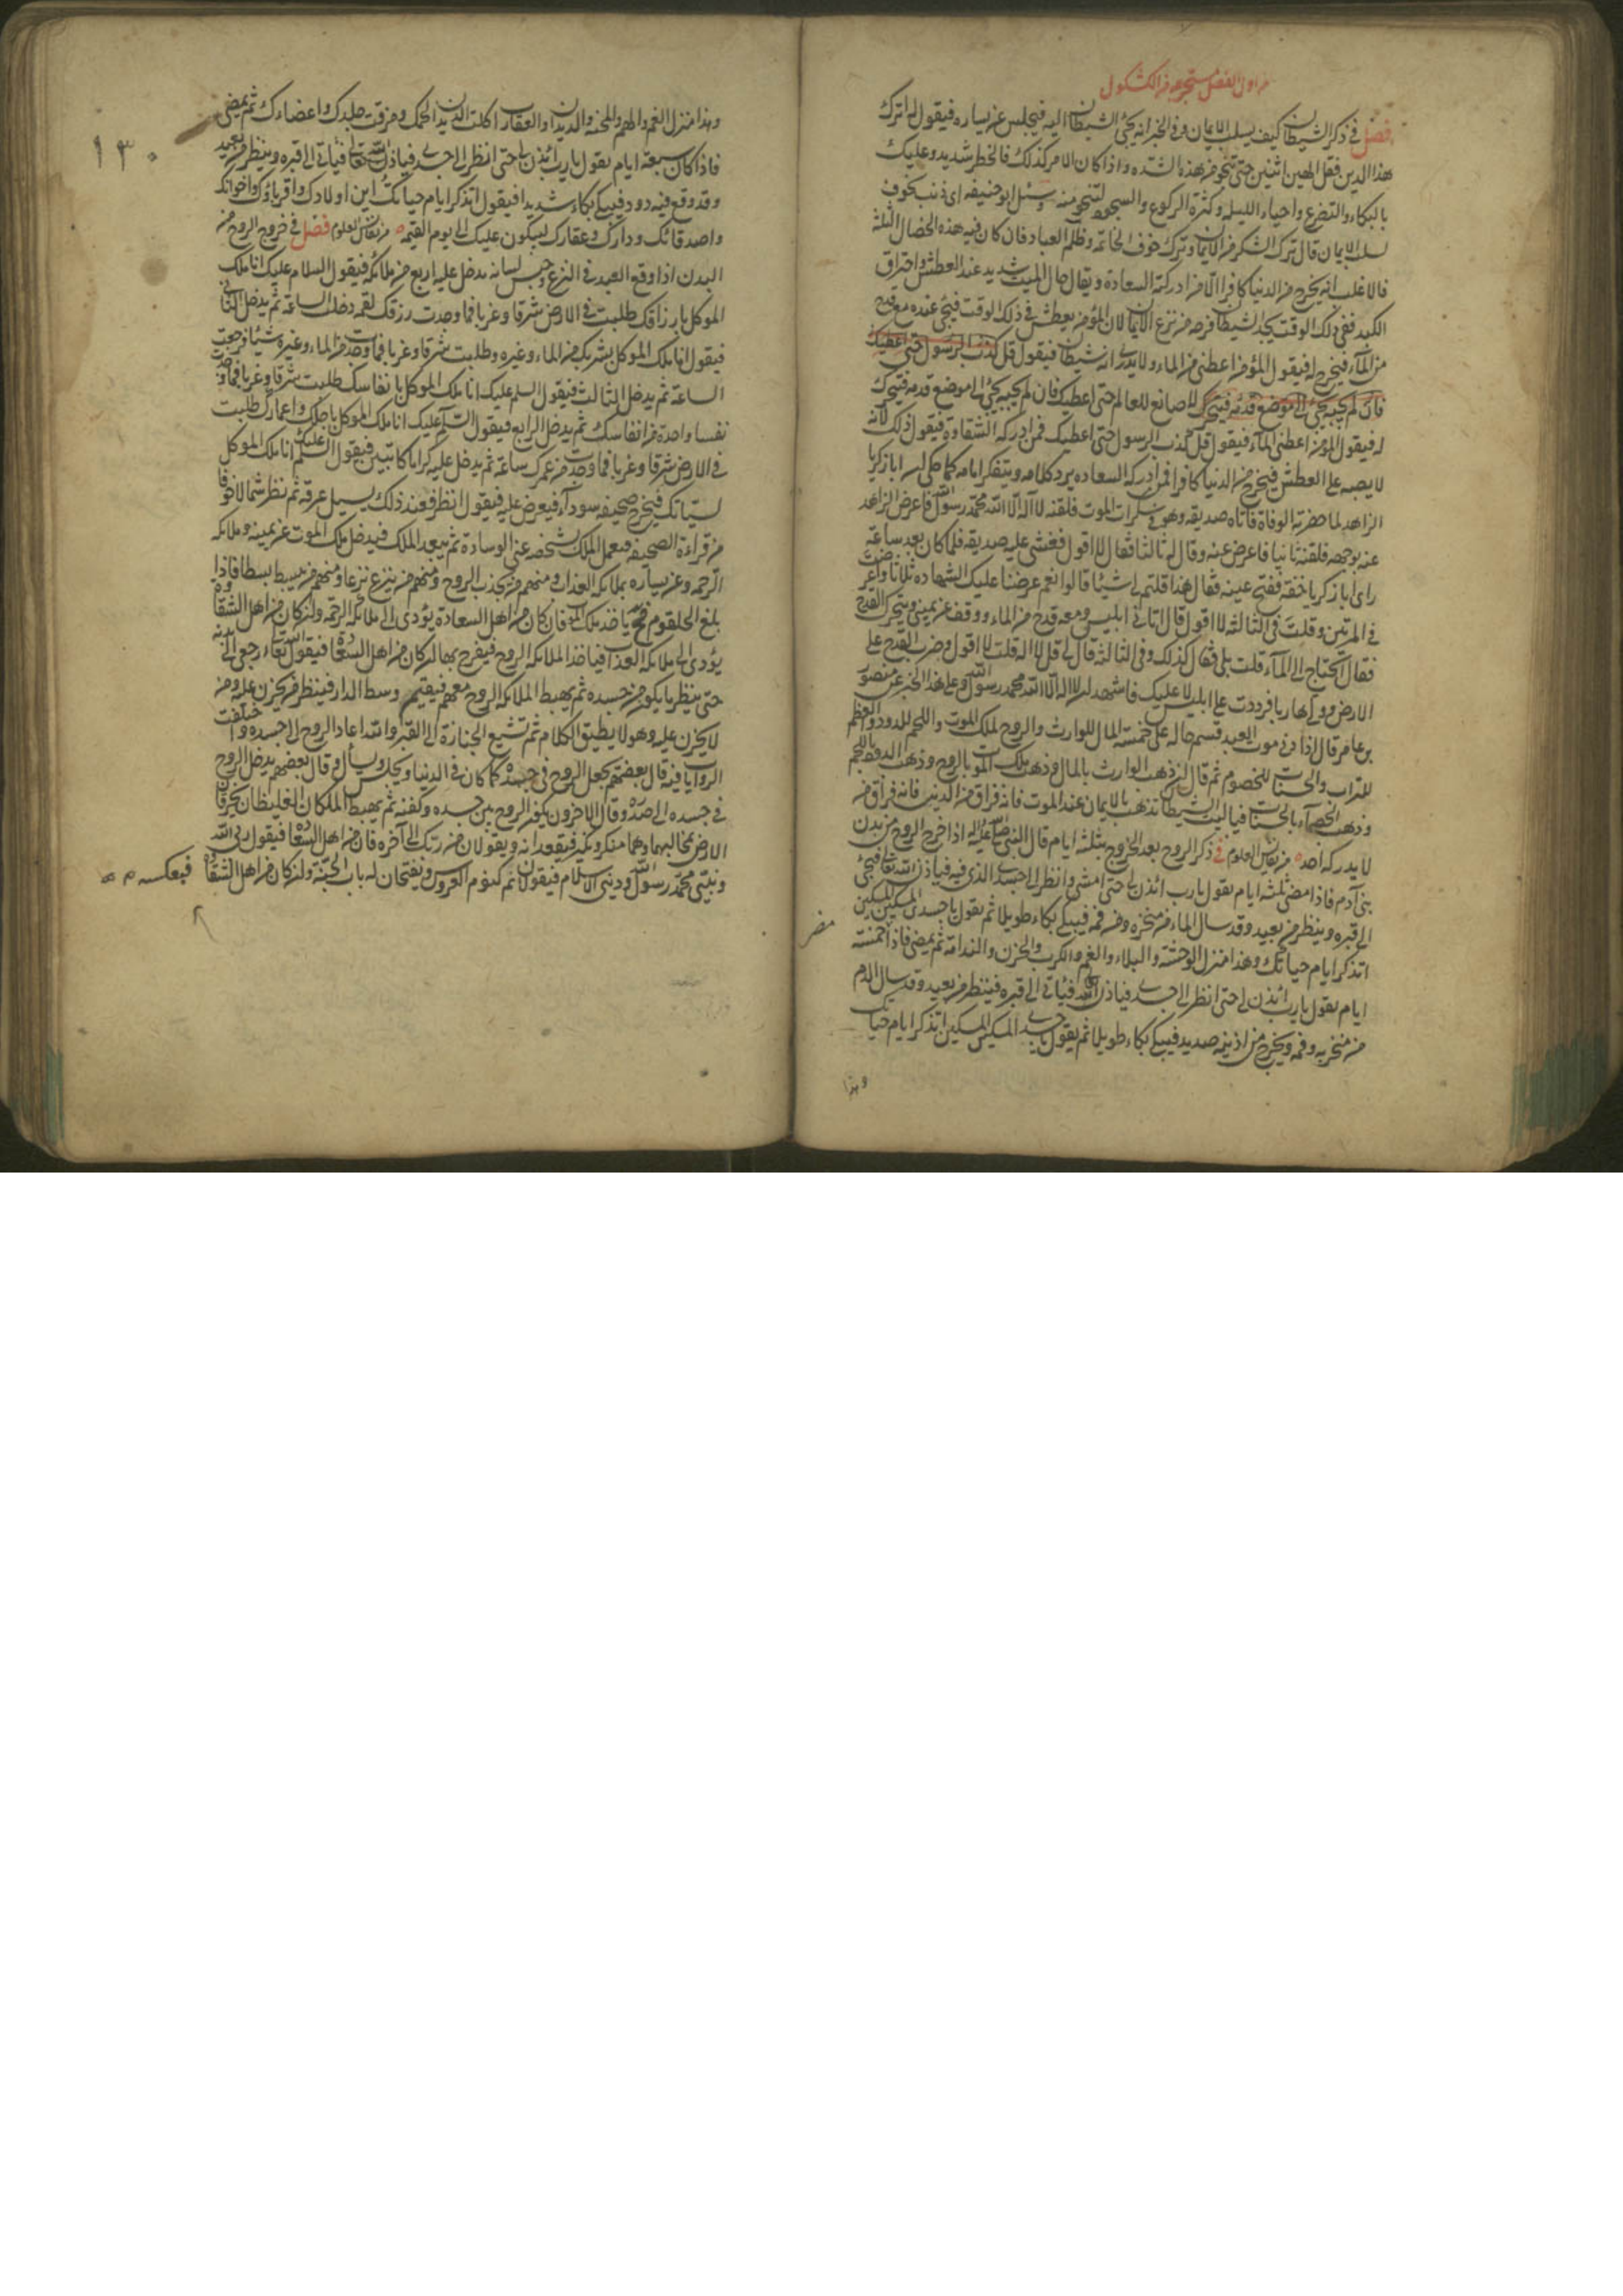 من اول الفصل مستخرجه من الكشكول
فصل في ذكر الشيطان كيف يسلب الايمان وفي الخبر انه يجئ الشيطان اليه فيجلس عن يساره فيقول له اترك
هذا الدين فقل الهين اثنين حتى تنجو من هذه الشدة واذا كان الامر كذلك فالخطر شديد وعليك
بالبكاء والتضرع واحياء الليله وكثرة الركوع والسجود لتنجو منه وسئل ابو حنيفه اى ذنب يخوف
لسلب الايمان قال ترك الشكر من الايمان وترك خوف الخاتمه وظلم العباد فان كان فيه هذه الخصال الثلثه
فالاغلب انه يخرج من الدنيا كافرا الا من ادركته السعادة ويقال حال الميت شديد عند العطش واحتراق
الكبد ففي ذلك الوقت يجد الشيطان فرصه من نزع الايمان لان المؤمن يعطش في ذلك الوقت فيجئ عنده مع قدح
من الماء فيخرج له فيقول المؤمن اعطني من الماء ولا يدرى انه شيطان فيقول قل كذب الرسول حتى اعطيك
فان لم يجبه يجئ الى موضع قدمه فيتحرك لا صانع للعالم حتى اعطيك فان لم يجبه يجئ الى موضع قدمه فيتحرك
له فيقول المؤمن اعطني الماء فيقول قل كذب الرسول حتى اعطيك فمن ادركه الشقاوة فيقول ذلك لانه
لا يصبر على العطش فيخرج من الدنيا كافرا فمن ادركه السعاده يرد كلامه ويتفكر امامه كما حكى ان ابا زكريا
الزاهد لما حضرته الوفاة فاتاه صديقه وهو في سكرات الموت فلقنه لا اله الا الله محمد رسول الله فاعرض الزاهد
عنه بوجهه فلقنه ثانيا فاعرض عنه وقال له ثالثا فقال لا اقول فغشى عليه صديقه فلما كان بعد ساعة
راى ابا زكريا خفة ففتح عينيه فقال هذا قلتم لي شيئا قالوا نعم عرضنا عليك الشهاده ثلاثا واعرضت
في المرتين وقلت في الثالثه لا اقول قال اتاني ابليس ومعه قدح من الماء ووقف عن يميني ويتحرك القدح
فقال اتحتاج الى الماء قلت بلى فقال كذلك وفي الثالثه قال لي قل لا اله قلت لا اقول وضرب القدح على
الارض وولى هاربا فرددت على ابليس لا عليك فاشهد ان لا اله الا الله محمد رسول الله وعلى هذا الخبر عن منصور
بن عامر قال اذا دنى موت العبد قسم حاله على خمسة المال للوارث والروح لملك الموت واللحم للدود والعظم
للتراب والحسنات للخصوم ثم قال ان ذهب الوارث بالمال وذهب ملك الموت بالروح وذهب الدود باللحم
وذهب الخصماء بالحسنات فيا ليت الشيطان لا تذهب بالايمان عند الموت فانه فراق من الدين فانه فراق من
لا يدركه احد من نفايس العلوم في ذكر الروح بعد الخروج بثلثه ايام قال النبي صلى الله عليه واله اذا خرج الروح من بدن
بني آدم فاذا مضى ثلثه ايام يقول يا رب ائذن لي حتى امشى وانظر الى جسدى الذي فيه فياذن الله تعالى فيجئ
الى قبره وينظر من بعيد وقد سال الماء من منخره ومن فمه فيبكي بكاء طويلا ثم يقول يا جسدى المسكين المسكين
اتذكر ايام حياتك وهذا منزل الوحشة والبلاء والغم والكرب والحزن والندامة ثم يمضي فاذا خمسة
ايام يقول يا رب ائذن لي حتى انظر الى جسدى فياذن الله فياتي الى قبره فينظر من بعيد وقد سال الدم
من منخريه وفمه ويخرج من اذنيه صديد فيبكي بكاء طويلا ثم يقول يا جسدى المسكين المسكين اتذكر ايام حياتك
وهذا
وهذا منزل الغم والهم والمحنة والديدان والعقارب اكلت الديدان لحمك ومزقت جلدك واعضاءك ثم يمضي
١٣٠
فاذا كان سبعة ايام يقول يا رب ائذن لي حتى انظر الى جسدى فياذن الله تعالى فياتي الى قبره وينظر من بعيد
وقد وقع فيه دود فيبكي بكاء شديدا فيقول اتذكر ايام حياتك اين اولادك واقرباؤك واخوانك
واصدقائك ودارك وعقارك ليبكون عليك الى يوم القيمه من نفائس العلوم فصل في خروج الروح من
البدن اذا وقع العبد في النزع وحبس لسانه يدخل عليه اربع من ملائكه فيقول السلام عليك انا ملك
الموكل بارزاقك طلبت في الارض شرقا وغربا فما وجدت رزقك لقمه دخلت الساعة ثم يدخل الثاني
فيقول انا ملك الموكل بشربك من الماء وغيره وطلبت شرقا وغربا فما وجدت من الماء وغيره شيئا فرجعت
الساعة ثم يدخل الثالث فيقول السلم عليك انا ملك الموكل بانفاسك طلبت شرقا وغربا فما وجدت
نفسا واحدة من انفاسك ثم يدخل الرابع فيقول السلم عليك انا ملك الموكل باجلك واعمارك طلبت
في الارض شرقا وغربا فما وجدت من عمرك ساعة ثم يدخل عليه كراما كاتبين فيقول السلم عليك انا ملك الموكل
لسيئاتك فيخرج صحيفه سوداء فيعرض عليه فيقول انظر فعند ذلك يسيل عرقه ثم نظر شمالا خوفا
من قراءة الصحيفه فيعمل الملك شخصه عن الوسادة ثم يبعد الملك فيدخل ملك الموت عن يمينه وملائكه
الرحمه وعن يساره بملائكه العذاب ومنهم من يجذب الروح ومنهم من ينزع نزعا ومنهم من يبسط بسطا فاذا
بلغ الحلقوم ياخذ ملك الموت فان كان من اهل السعادة يؤدى الى ملائكه الرحمه وان كان من اهل الشقاوة
يؤدى الى ملائكه العذاب فياخذ الملائكه الروح فيفرح بها ان كان من اهل السعادة فيقول الله تعالى ارجعي الى بدنه
حتى ينظر ما يكون من جسده ثم يهبط الملائكه الروح معهم فيقيم وسط الدار فينظر من يحزن عليه ومن
لا يحزن عليه وهو لا يطيق الكلام ثم تشيع الجنازة الى القبر والله اعاد الروح الى جسده واختلفت
الروايات فيه قال بعضهم يجعل الروح في جسده كما كان في الدنيا ويجلس ويسأل وقال بعضهم يدخل الروح
في جسده الى صدره وقال الاخرون يكون الروح بين جسده وكفنه ثم يهبط الملكان الغليظان يخرقان
الارض بمخالبهما وهما منكر ونكير فيقعدانه ويقولان من ربك الى آخره فان من اهل السعادة فيقول ربي الله
ونبيي محمد رسول الله وديني الاسلام فيقولان نم كنوم العروس ويفتحان له باب الجنة وان كان من اهل الشقاوة فبعكسه